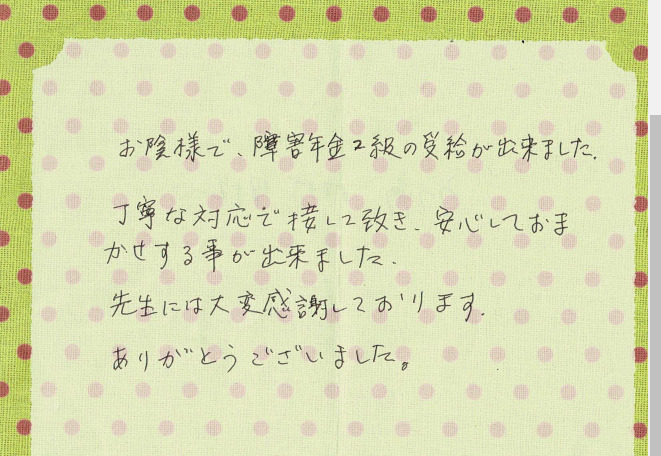 お陰様で、障害年金2級の受給が出来ました.
丁寧な対応で接して致き、安心しておま
かせする事が出来ました.
先生には大変感謝しております.
ありがとうございました。